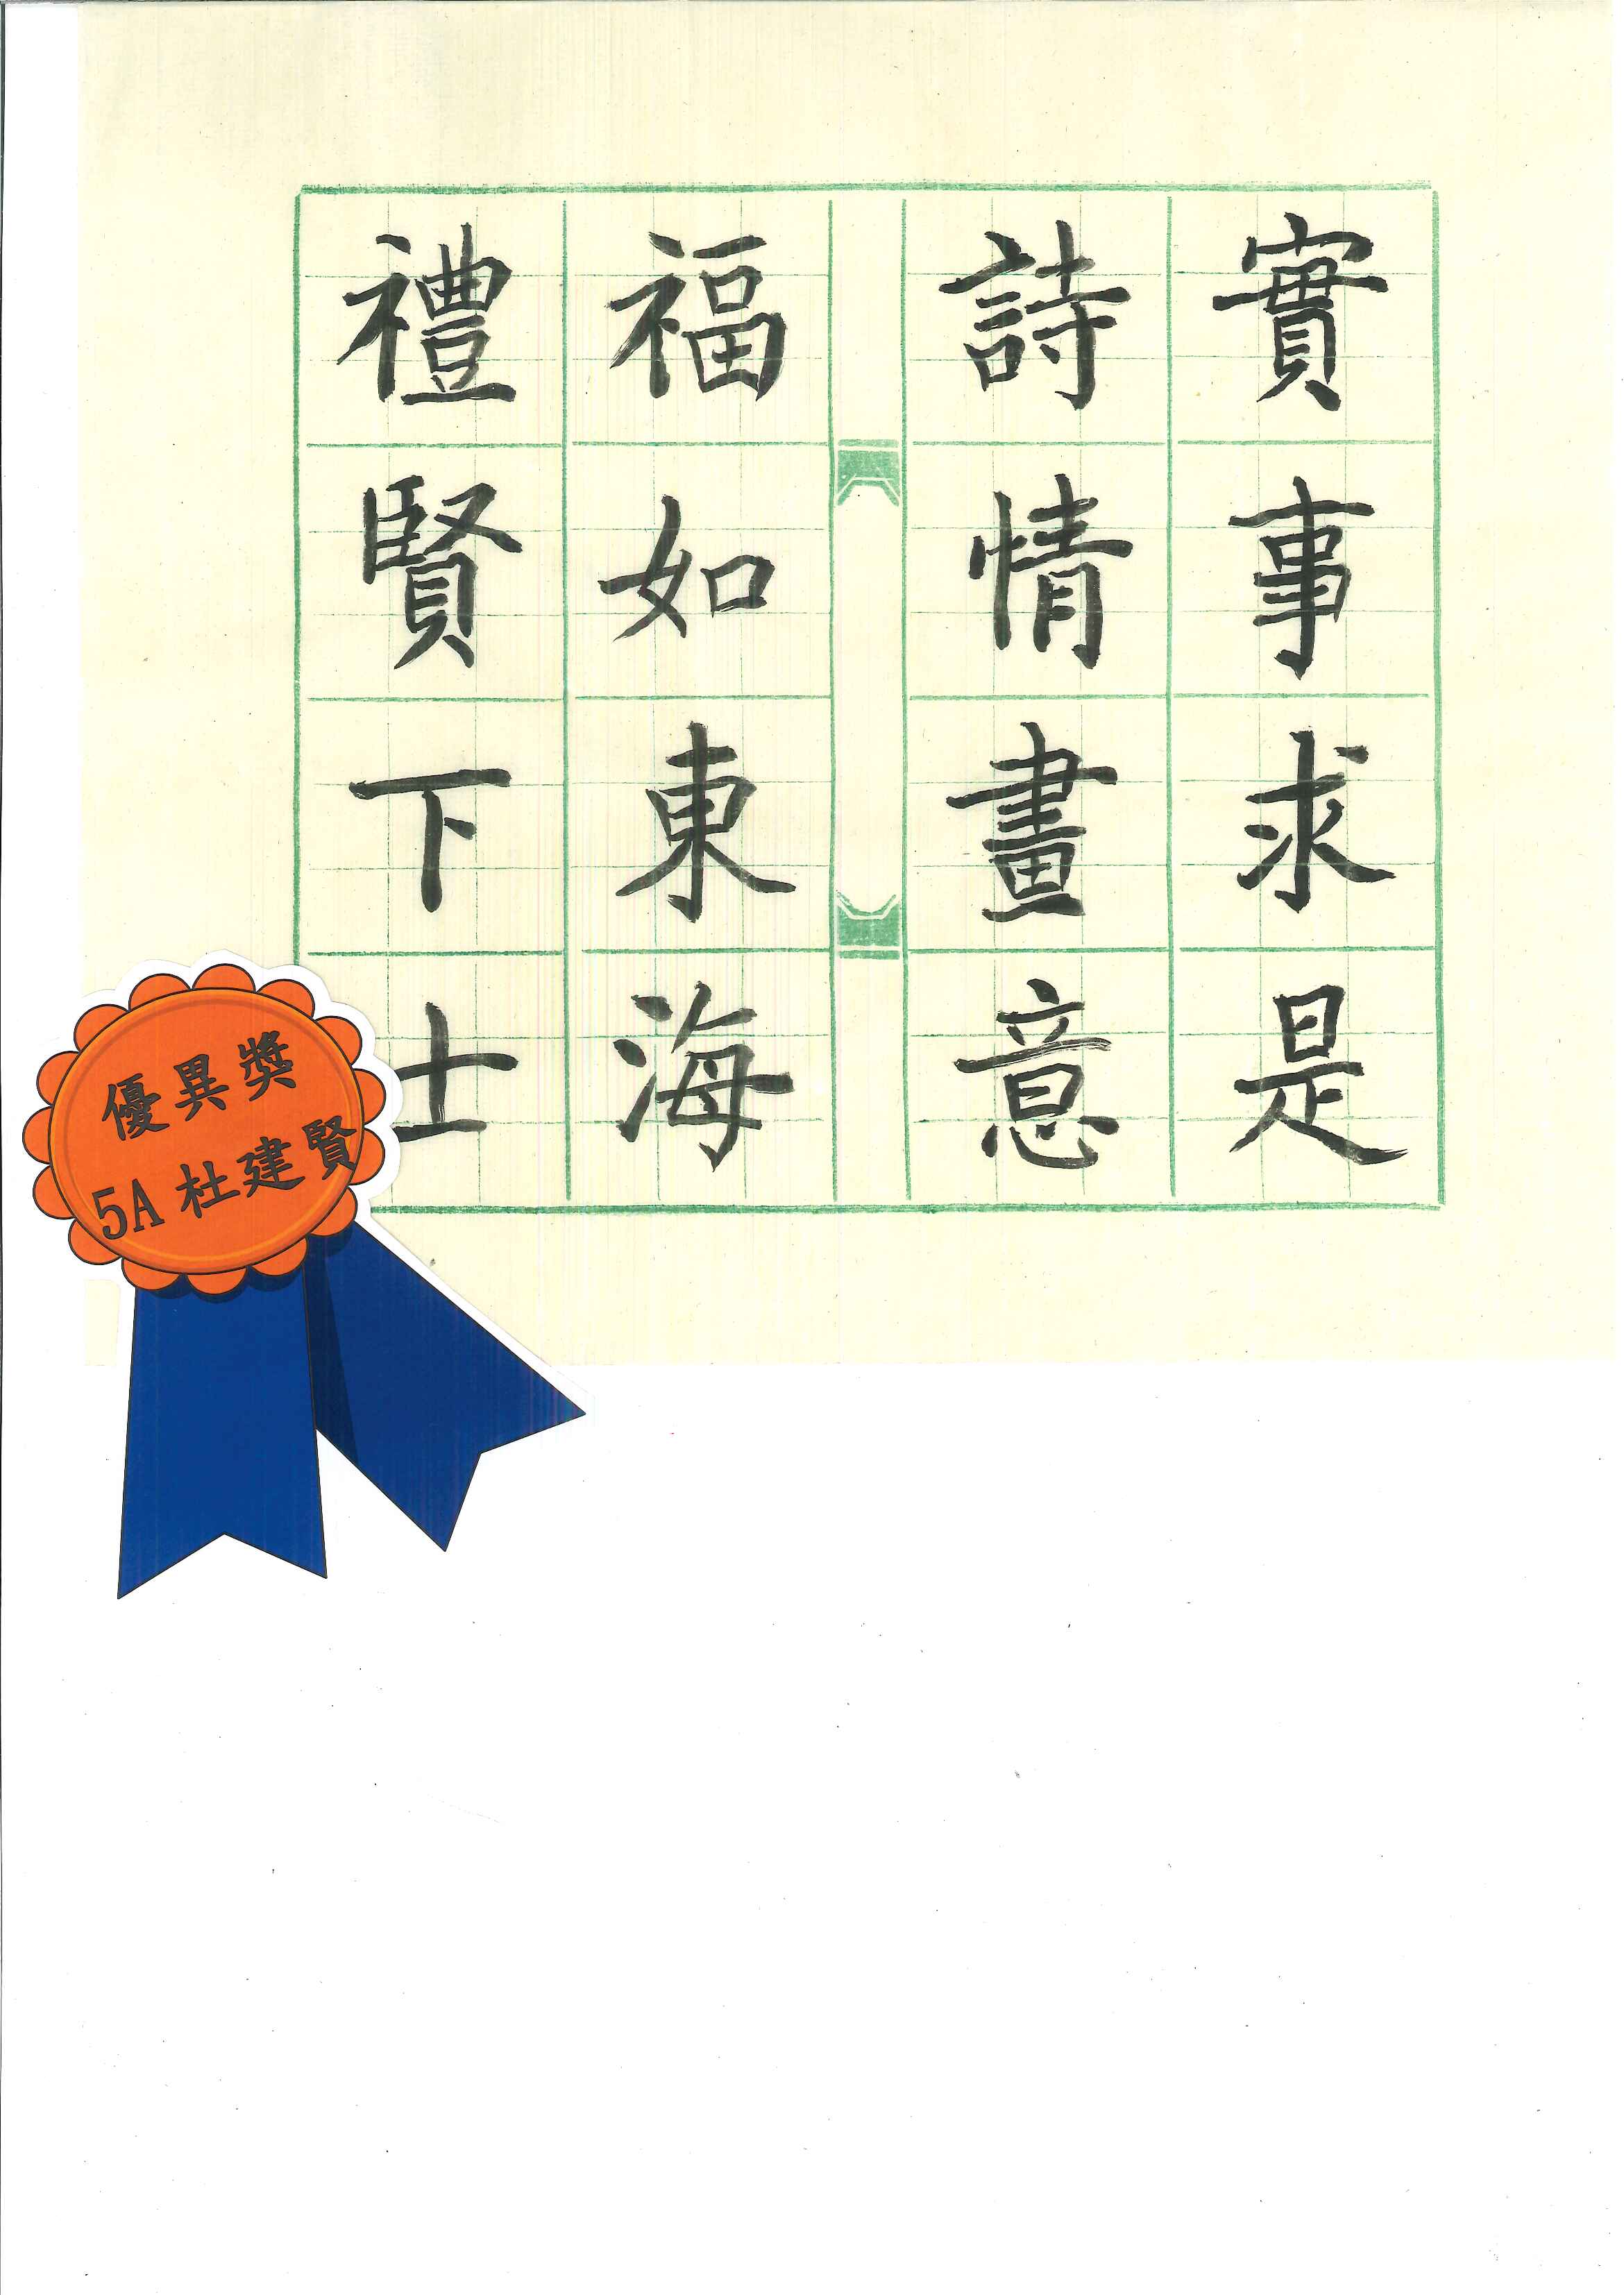 實事求是
詩情畫意
福如東海
禮賢下士
優異獎
5A 杜建賢